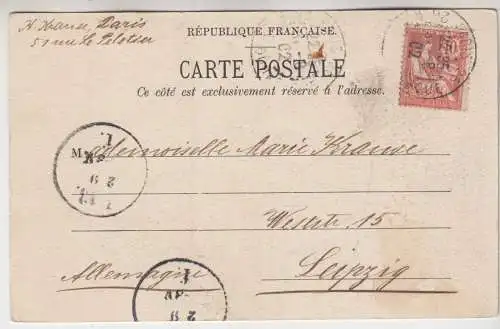 H Krause, Paris
51 rue Le Peletier
RÉPUBLIQUE FRANÇAISE.
CARTE POSTALE
Ce côté est exclusivement réservé à l'adresse.
Mademoiselle Marie Krause
Weststr. 15
Allemagne Leipzig